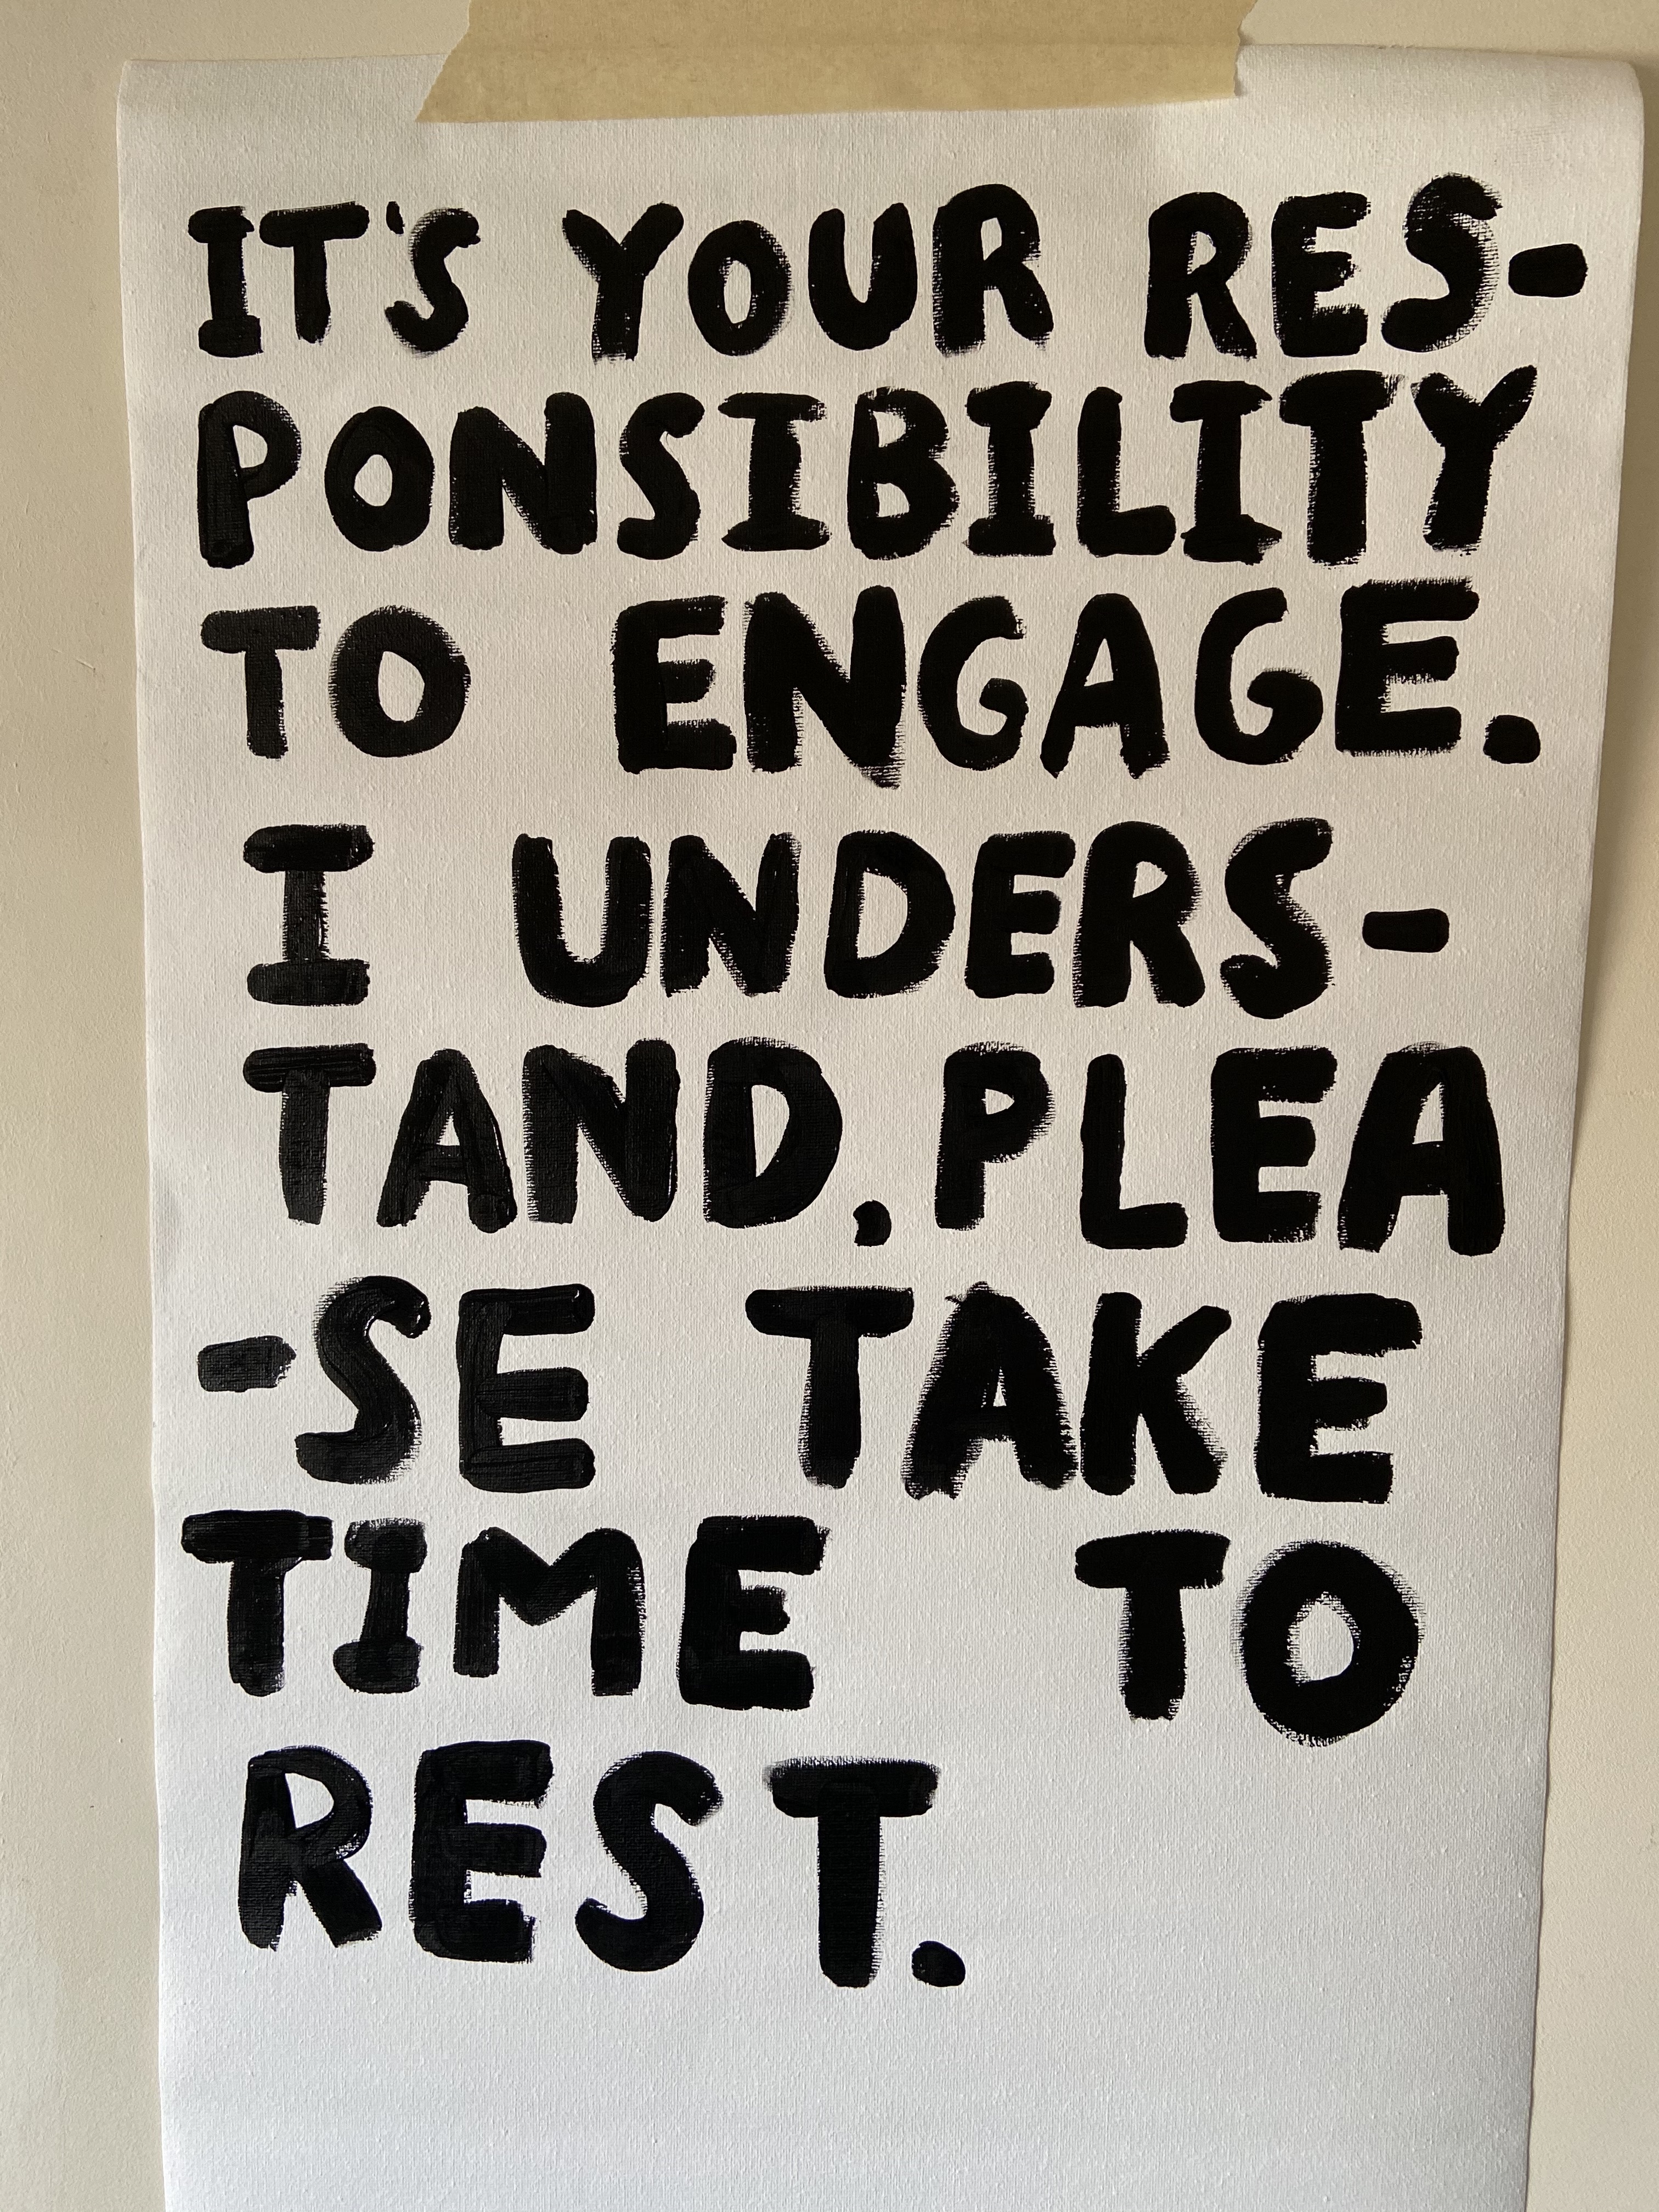 IT'S YOUR RES-
PONSIBILITY
TO ENGAGE.
I UNDERS-
TAND. PLEA
-SE TAKE
TIME TO
REST.